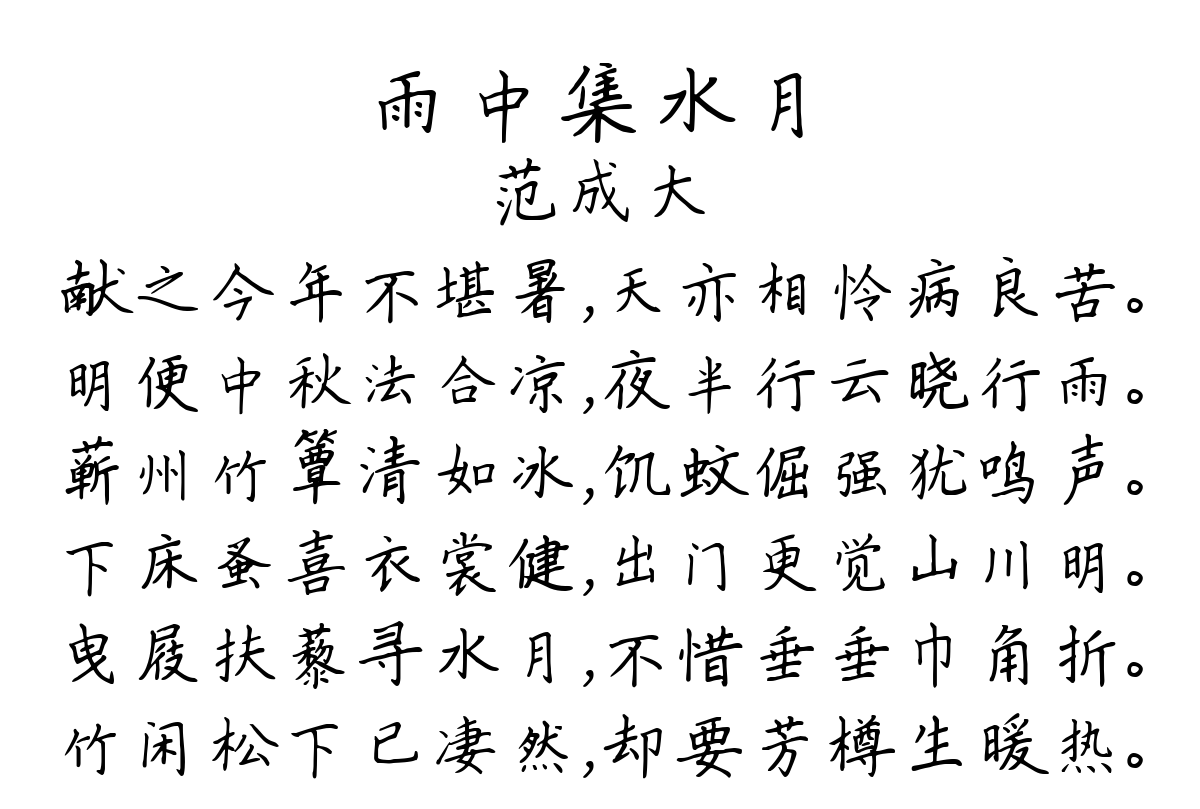 雨中集水月
范成大
献之今年不堪暑,天亦相怜病良苦。
明便中秋法合凉,夜半行云晓行雨。
蕲州竹簟清如冰,饥蚊倔强犹鸣声。
下床蚤喜衣裳健,出门更觉山川明。
曳屐扶藜寻水月,不惜垂垂巾角折。
竹闲松下已凄然,却要芳樽生暖热。